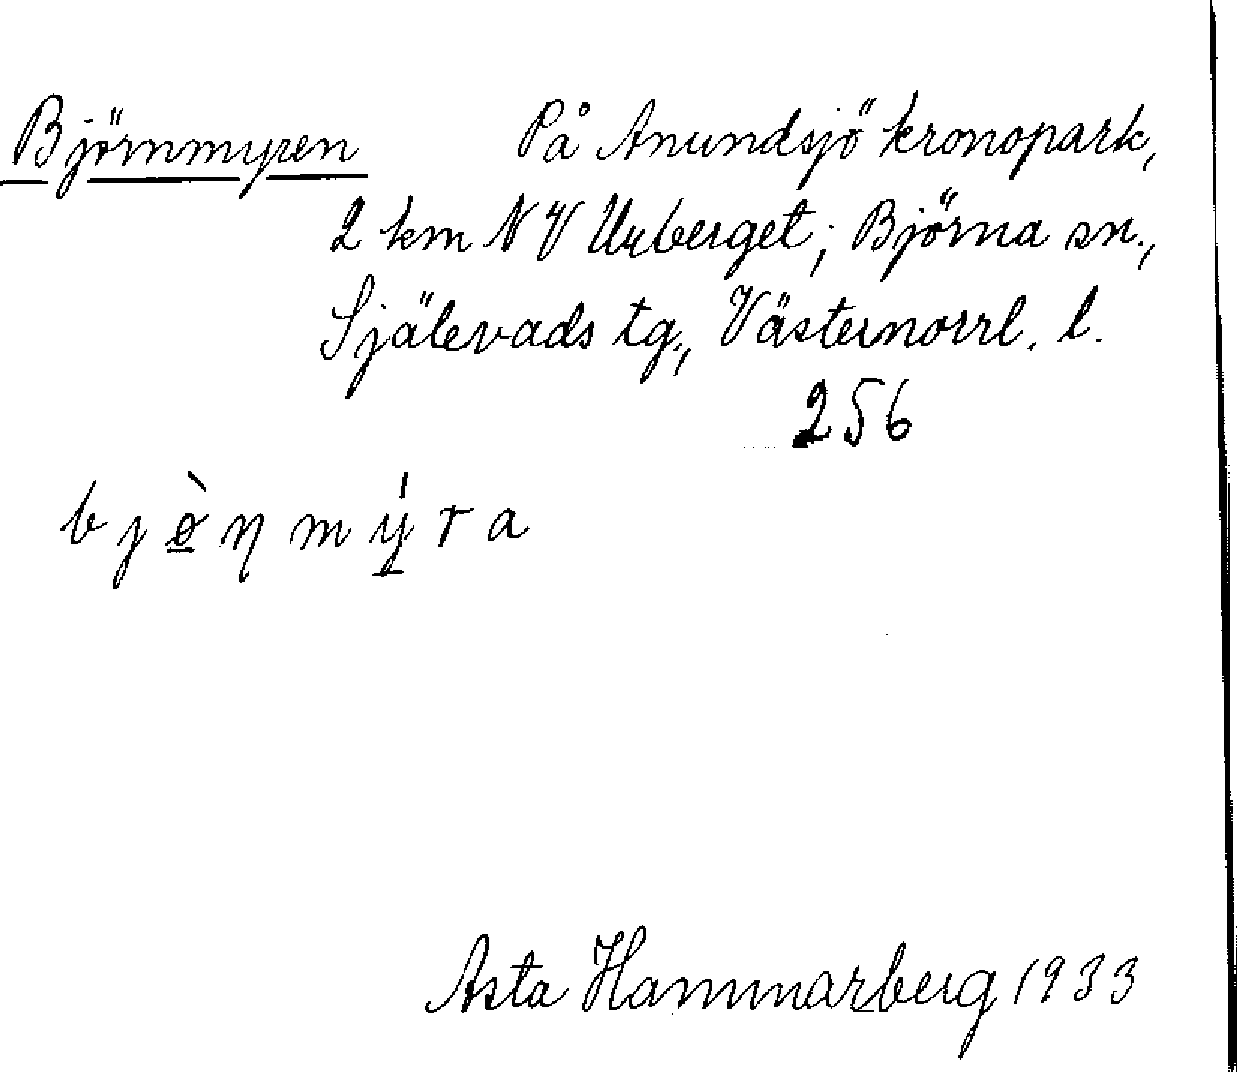 Björnmyren På Anundsjö kronopark,
2 km NV Urberget; Björna sn.,
Själevads tg., Västernorrl. l.
256
b j ø̀ η m ý r a
Asta Hammarberg 1933